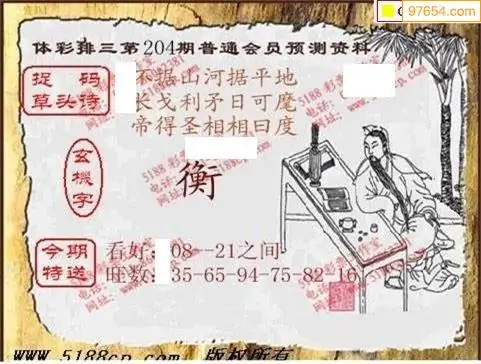 97654.com
体彩排三第204期普通会员预测资料
捉码
草头诗
不据山河据平地
长戈利矛日可麾
帝得圣相相曰度
玄機字
衡
今期
特送
看好:08--21之间
旺数:35-65-94-75-82-16
www.5188cp.com 版权所有